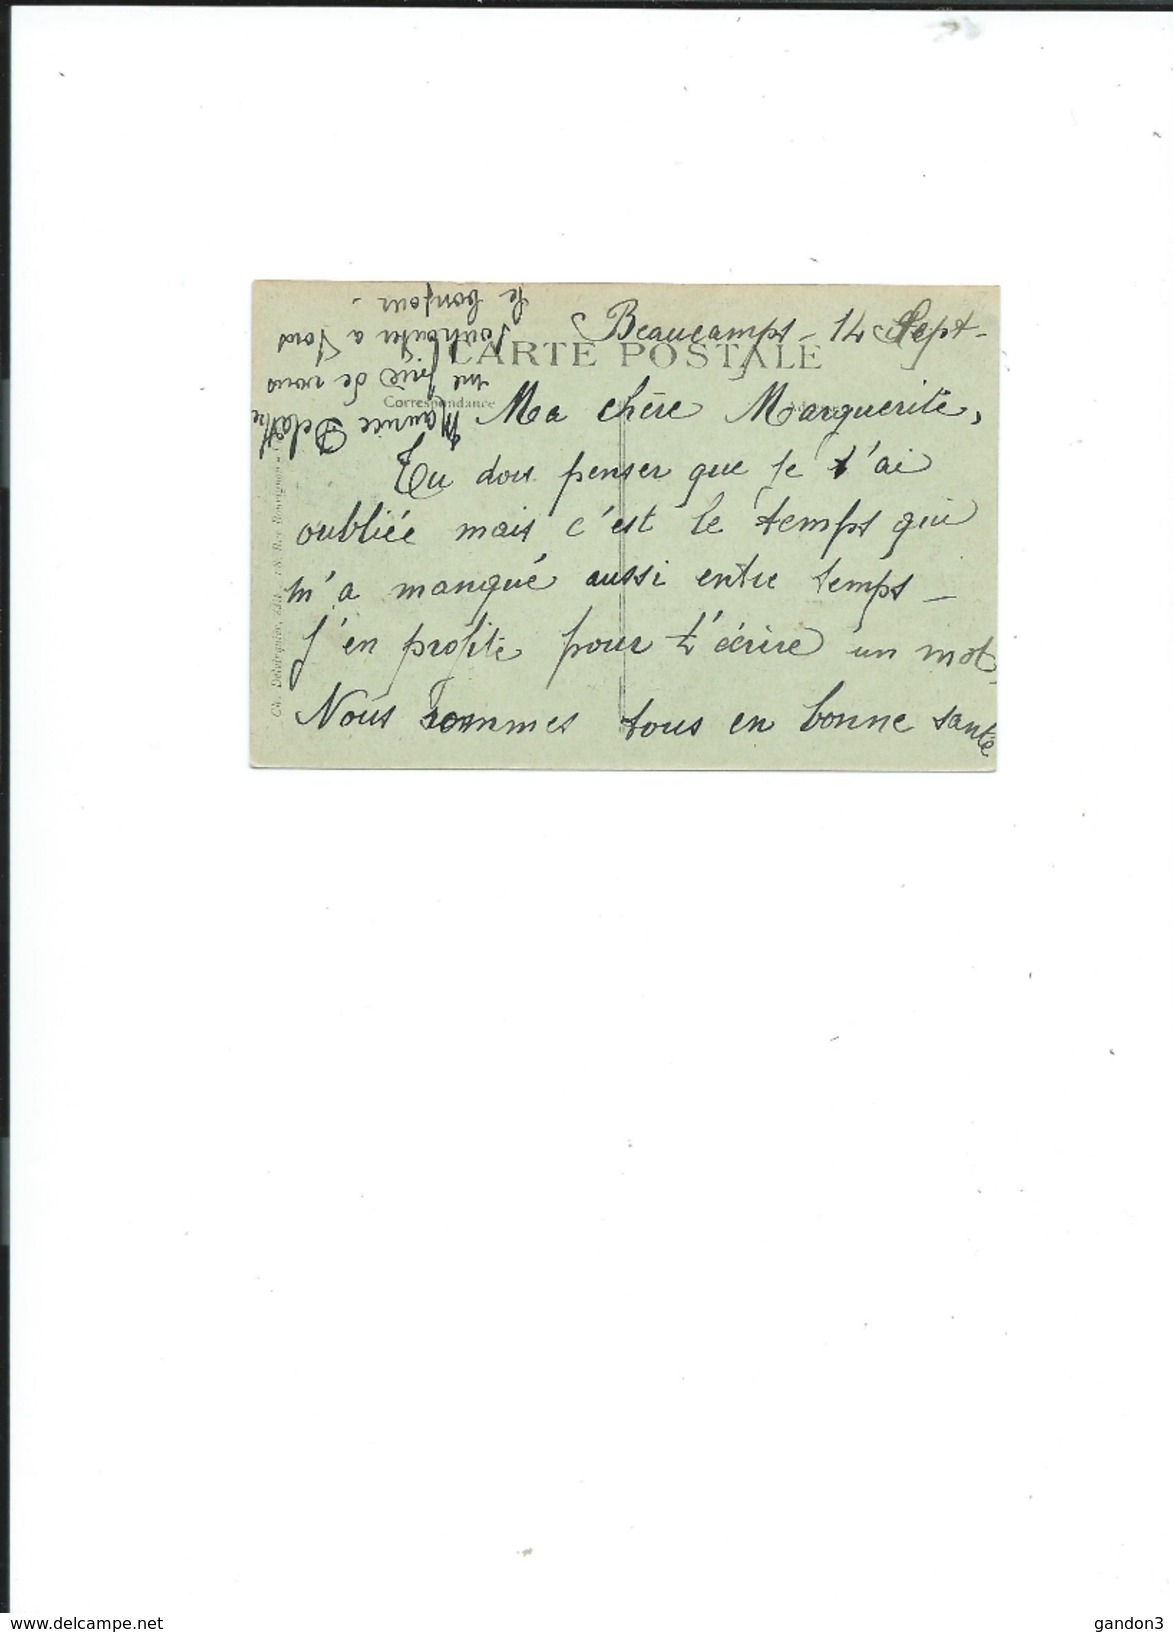 Beaucamps - 14 Sept -
CARTE POSTALE
Correspondance
Ma chère Marguerite,
Tu dois penser que je t'ai
oubliée mais c'est le temps qui
m'a manqué aussi entre temps -
J'en profite pour t'écrire un mot,
Nous sommes tous en bonne santé
Maurice Delattre
me prie de vous
souhaiter à tous
le bonjour.
www.delcampe.net
gandon3